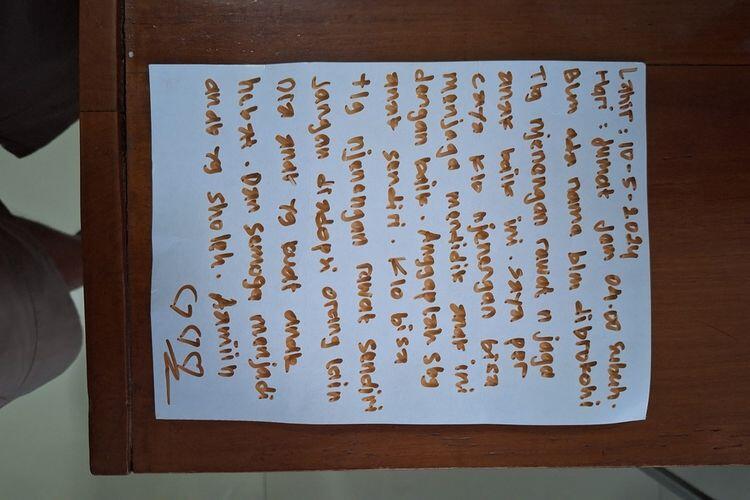 Lahir : 10-5-2024
Hari : Jumat Jam 04.00 subuh.
Blm ada nama blm dibrokohi
Tlg njenengan rawat n jaga
anak baik ini. saya per
caya klo njenengan bisa
menjaga mendidik anak ini
dengan baik. Anggaplah sbg
anak sendiri. Klo bisa
tlg njenengan rawat sendiri
Jangan diadopsi orang lain
Dia anak yg kuat anak
hebat. Dan semoga menjadi
anak yg sholeh. Aamiiin